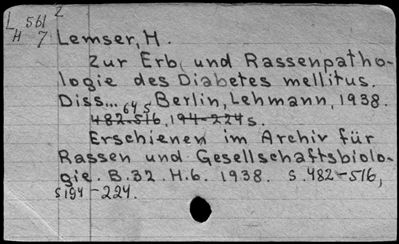 L 561 2
H 7 Lemser, H.
Zur Erb und Rassenpatho-
logie des Diabetes mellitus.
Diss... Berlin, Lehmann, 1938.
64 S
482-516, 194-224 s.
Erschienen im Archiv für
Rassen und Gesellschaftsbiolo-
gie. B.32. H.6. 1938. S.482-516,
S 194-224.